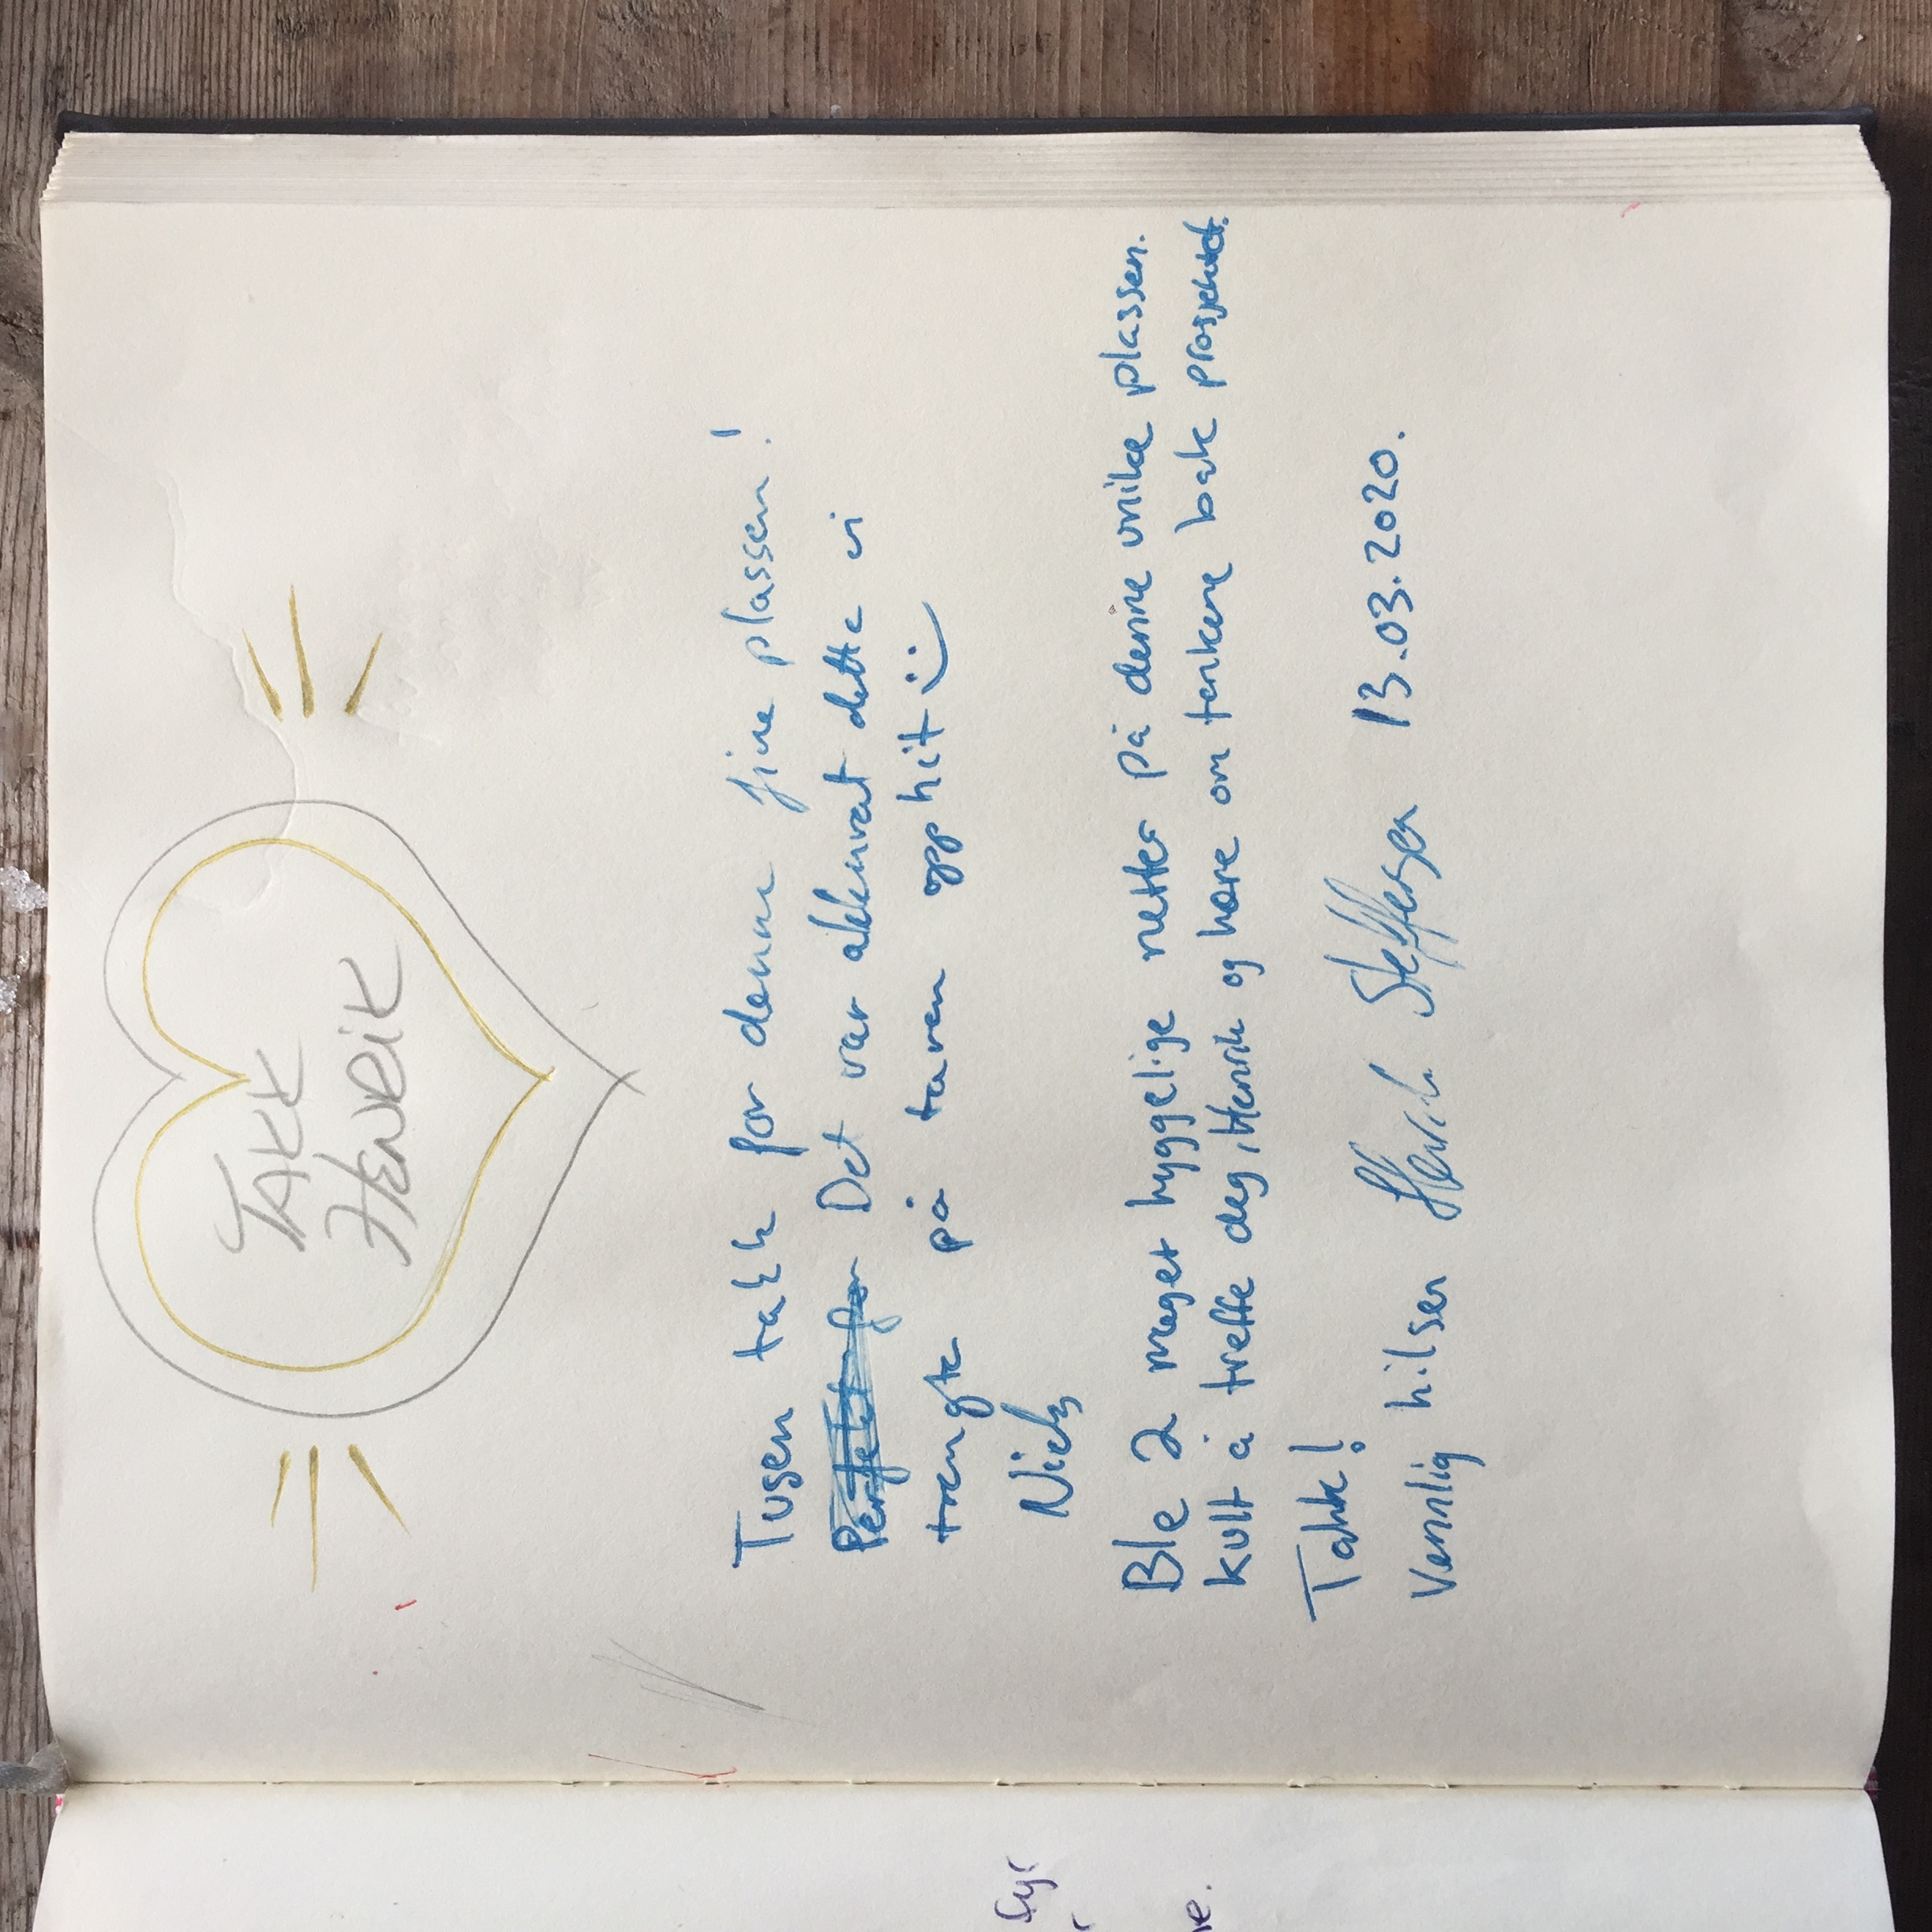 TAKK
HENRIK
Tusen takk for denne fine plassen!
Det var akkurat dette vi
trengte på turen opp hit :)
Niels
Ble 2 meget hyggelige netter på denne unike plassen.
kult å treffe deg, Henrik og høre om tanken bak prosjektet.
Takk!
Vennlig hilsen Henrik Steffensen 13.03.2020.